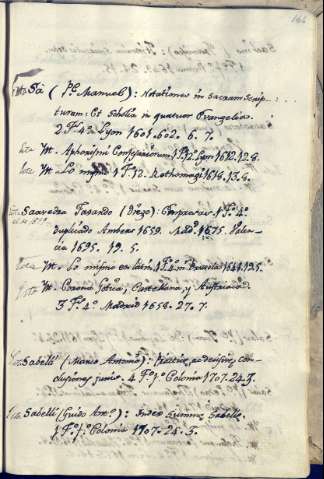 166
Sà (Pe. Manuel): Notationes in sacram Scrip-
turam: Et Scholia in quatuor Evangelia.
2 Ts. 4º Lyon 1601. 602. 6. 7.
Yt. Aphorismi Confessariorum 1 Tº 12. Lyon 1612. 12. 8.
Yt. Lo mismo 1 Tº 12. Rothomagi 1618. 13. 8.
Saavedra Faxardo (Diego): Empresas 1 Tº 4º
duplicado Amberes 1659. Madd. 1675. Valen-
cia 1695. 19. 5.
Yt. Lo mismo en latin 1 Tº 4º Bruxelas 1649. 19. 5.
Yt. Corona Gotica, Castellana, y Austriaca
3 Ts. 4º Madrid 1658. 27. 7.
Sabelli (Marco Antonio): 
clusiones 4 Ts. fº Colonia 1707. 24. 3.
Sabelli (Guido Ant.º): Index Summæ Sabelli.
1 Tº fº Colonia 1707. 24. 3.